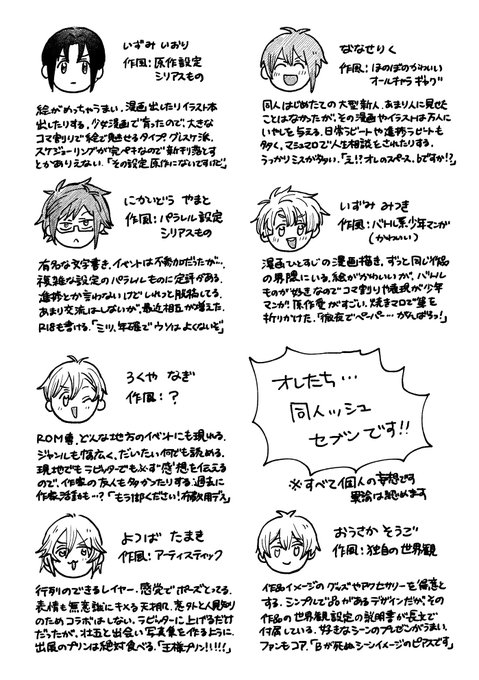 いずみ いおり
作風：原作設定
シリアスもの
絵がめっちゃうまい。漫画出したりイラスト本
出したりする。少女漫画で育ったので、大きな
コマ割りで絵で魅せるタイプ。グッズ派。
スケジューリングが完ペキなので新刊落とす
とかありえない。「その設定、原作にないですけど」
ななせ りく
作風：ほのぼのかわいい
オールキャラギャグ
同人はじめたての大型新人。あまり人に見せた
ことはなかったが、その漫画やイラストは万人に
いやしを与える。日常ラビートや進捗ラビートも
多く、マシュマロで人生相談をされたりする。
うっかりミスが多い。「え!?オレのスペース、ドコですか!?」
にかいどう やまと
作風：パラレル設定
シリアスもの
有名な文字書き。イベントは不参加だったが…。
複雑な設定のパラレルものに定評がある。
進捗とか言わないけどしれっと脱稿してる。
あまり交流はしないが、最近相互が増えた。
R18も書ける。「ミツ、年確でウソはよくないぞ」
いずみ みつき
作風：バトル系少年マンガ
（かわいい）
漫画ひとすじの漫画描き。ずっと同じ作品
の界隈にいる。絵がかわいいが、バトル
ものが好きなのでコマ割りや表現が少年
マンガ。原作愛がすごい。焼きマロで筆を
折りかけた。「徹夜でペーパー…がんばろっ!」
ろくや なぎ
作風：？
ROM専。どんな地方のイベントにも現れる。
ジャンルも幅広く、だいたい何でも読める。
現地でもラビッターでも必ず感想を伝える
ので、作家の友人も多かったりする。過去に
作家活動も…？「もう1部ください！布教用デス」
オレたち…
同人ッシュ
セブンです!!
※すべて個人の妄想です
異論は認めます
よつば たまき
作風：アーティスティック
行列のできるレイヤー。感覚でポーズとってる。
表情も無意識にキメる天才肌。意外と人見知り
のためコラボはしない。ラビッターに上げるだけ
だったが、壮五と出会い写真集を作るように。
出展のプリンは絶対食べる。「王様プリン!!!!」
おうさか そうご
作風：独自の世界観
作品イメージのグッズやアクセサリーを得意と
する。シンプルで品があるデザインだが、その
作品の世界観設定の説明書が長文で
付属している。好きなシーンのプレゼンがうまい。
ファンもコア。「Bが死ぬシーンイメージのピアスです」